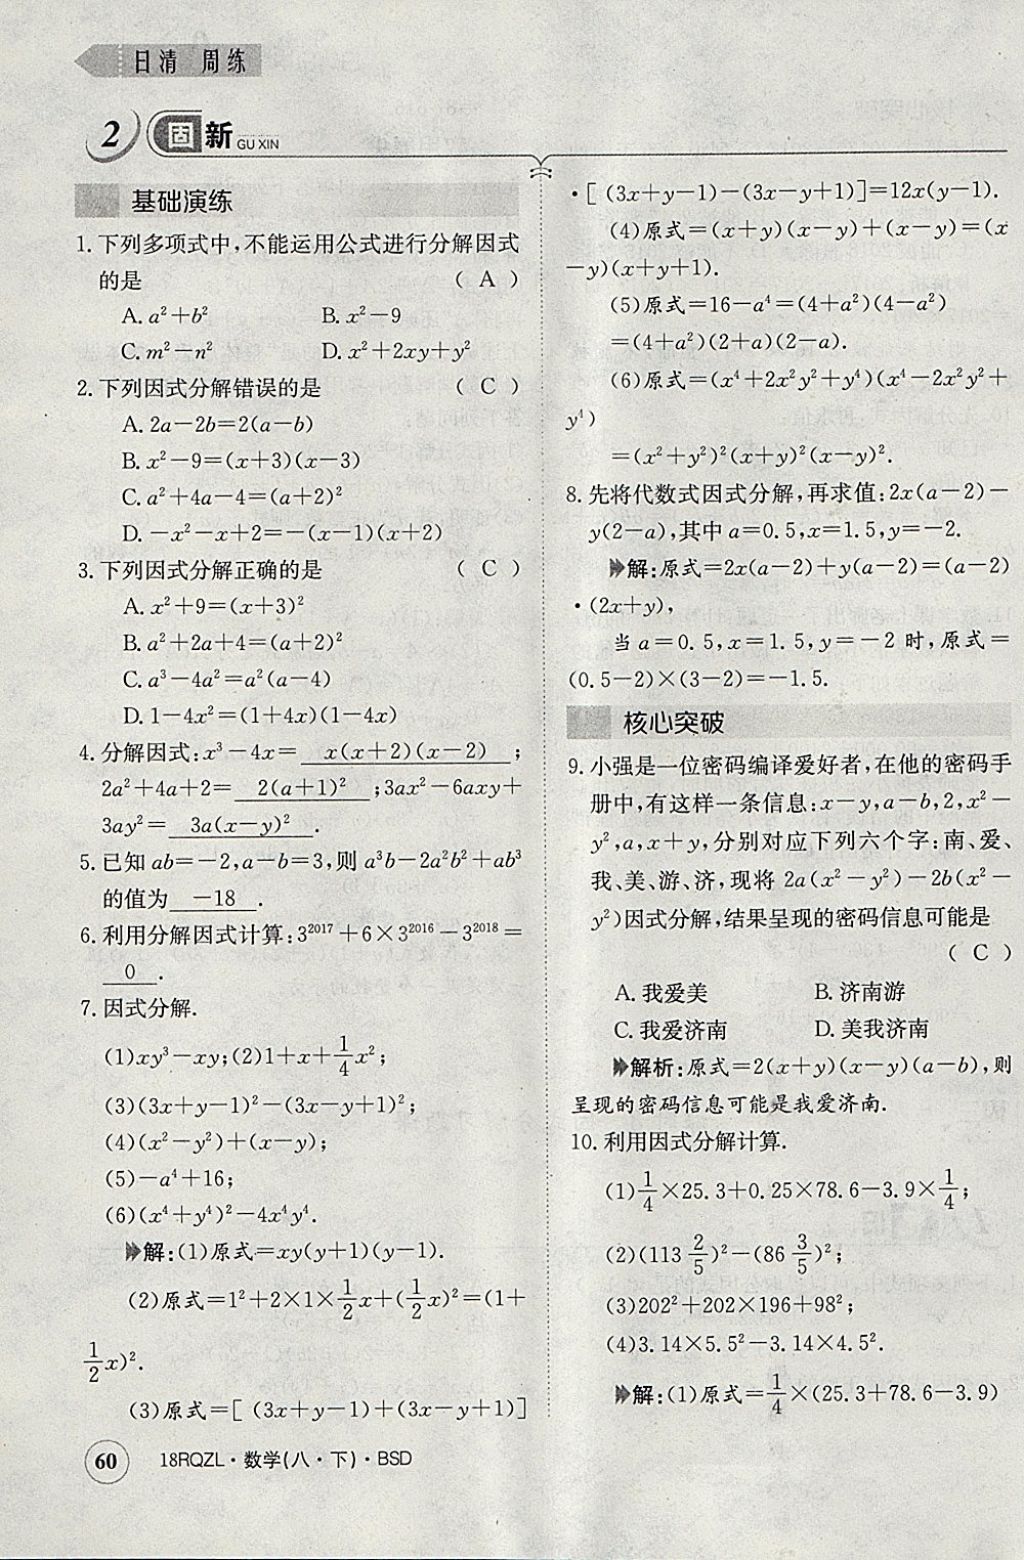 日清 周练
2 固新 GU XIN
基础演练
1. 下列多项式中,不能运用公式进行分解因式
的是 ( A )
A. a²+b² B. x²-9
C. m²-n² D. x²+2xy+y²
2. 下列因式分解错误的是 ( C )
A. 2a-2b=2(a-b)
B. x²-9=(x+3)(x-3)
C. a²+4a-4=(a+2)²
D. -x²-x+2=-(x-1)(x+2)
3. 下列因式分解正确的是 ( C )
A. x²+9=(x+3)²
B. a²+2a+4=(a+2)²
C. a³-4a²=a²(a-4)
D. 1-4x²=(1+4x)(1-4x)
4. 分解因式:x³-4x= x(x+2)(x-2) ;
2a²+4a+2= 2(a+1)² ;3ax²-6axy+
3ay²= 3a(x-y)² .
5. 已知 ab=-2,a-b=3,则 a³b-2a²b²+ab³
的值为 -18 .
6. 利用分解因式计算:3²⁰¹⁷+6×3²⁰¹⁶-3²⁰¹⁸=
0 .
7. 因式分解.
(1)xy³-xy;(2)1+x+1/4x²;
(3)(3x+y-1)²-(3x-y+1)²;
(4)(x²-y²)+(x-y);
(5)-a⁴+16;
(6)(x⁴+y⁴)²-4x⁴y⁴.
解:(1)原式=xy(y+1)(y-1).
(2)原式=1²+2×1×1/2x+(1/2x)²=(1+
1/2x)².
(3)原式=[(3x+y-1)+(3x-y+1)]
·[(3x+y-1)-(3x-y+1)]=12x(y-1).
(4)原式=(x+y)(x-y)+(x-y)=(x
-y)(x+y+1).
(5)原式=16-a⁴=(4+a²)(4-a²)
=(4+a²)(2+a)(2-a).
(6)原式=(x⁴+2x²y²+y⁴)(x⁴-2x²y²+
y⁴)
=(x²+y²)²(x+y)²(x-y)².
8. 先将代数式因式分解,再求值:2x(a-2)-
y(2-a),其中 a=0.5,x=1.5,y=-2.
解:原式=2x(a-2)+y(a-2)=(a-2)
·(2x+y),
当 a=0.5,x=1.5,y=-2 时,原式=
(0.5-2)×(3-2)=-1.5.
核心突破
9. 小强是一位密码编译爱好者,在他的密码手
册中,有这样一条信息:x-y,a-b,2,x²-
y²,a,x+y,分别对应下列六个字:南、爱、
我、美、游、济,现将 2a(x²-y²)-2b(x²-
y²)因式分解,结果呈现的密码信息可能是
( C )
A. 我爱美 B. 济南游
C. 我爱济南 D. 美我济南
解析:原式=2(x+y)(x-y)(a-b),则
呈现的密码信息可能是我爱济南.
10. 利用因式分解计算.
(1)1/4×25.3+0.25×78.6-3.9×1/4;
(2)(113 2/5)²-(86 3/5)²;
(3)202²+202×196+98²;
(4)3.14×5.5²-3.14×4.5².
解:(1)原式=1/4×(25.3+78.6-3.9)
60 18RQZL·数学(八·下)·BSD